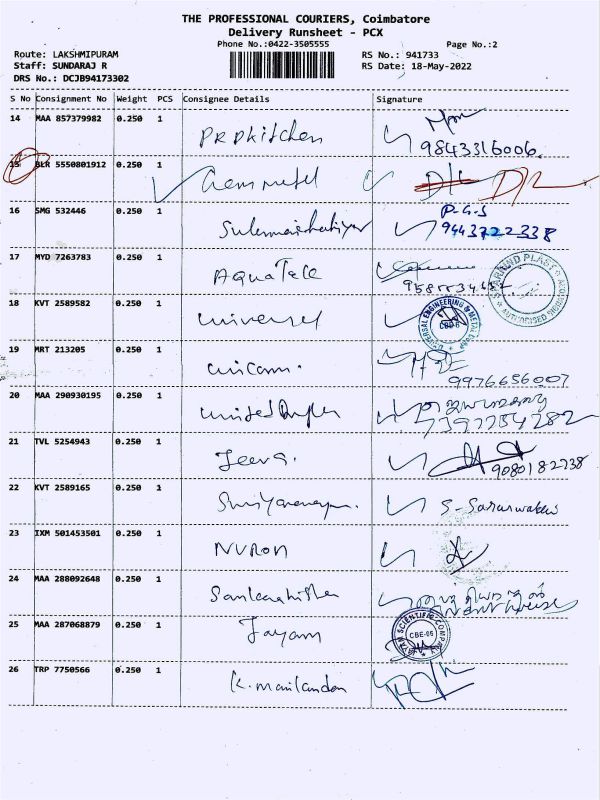 THE PROFESSIONAL COURIERS, Coimbatore
Delivery Runsheet - PCX
Phone No.:0422-3505555
Page No.:2
Route: LAKSHMIPURAM
RS No.: 941733
Staff: SUNDARAJ R
RS Date: 18-May-2022
DRS No.: DCJB94173302
S No Consignment No Weight PCS Consignee Details Signature
14 MAA 857379982 0.250 1 PRDKitchen
9843316006.
15 BLR 5550801912 0.250 1 D/L D/L
16 SMG 532446 0.250 1 P.G.S
9443722338
17 MYD 7263783 0.250 1 AquaTek
18 KVT 2589582 0.250 1 universel
UNIVERSAL ENGINEERING & METAL CORP
CBE-6
19 MRT 213205 0.250 1 unicorn.
9976656007
20 MAA 290930195 0.250 1 United
7397754282
21 TVL 5254943 0.250 1 Jeeva.
9080182738
22 KVT 2589165 0.250 1 S-Saraswathi
23 IXM 501453501 0.250 1 NURON
24 MAA 288092648 0.250 1
25 MAA 287068879 0.250 1 Jayam
JAYAM SCIENTIFIC COMPANY
CBE-05
26 TRP 7750566 0.250 1 K. mailandan